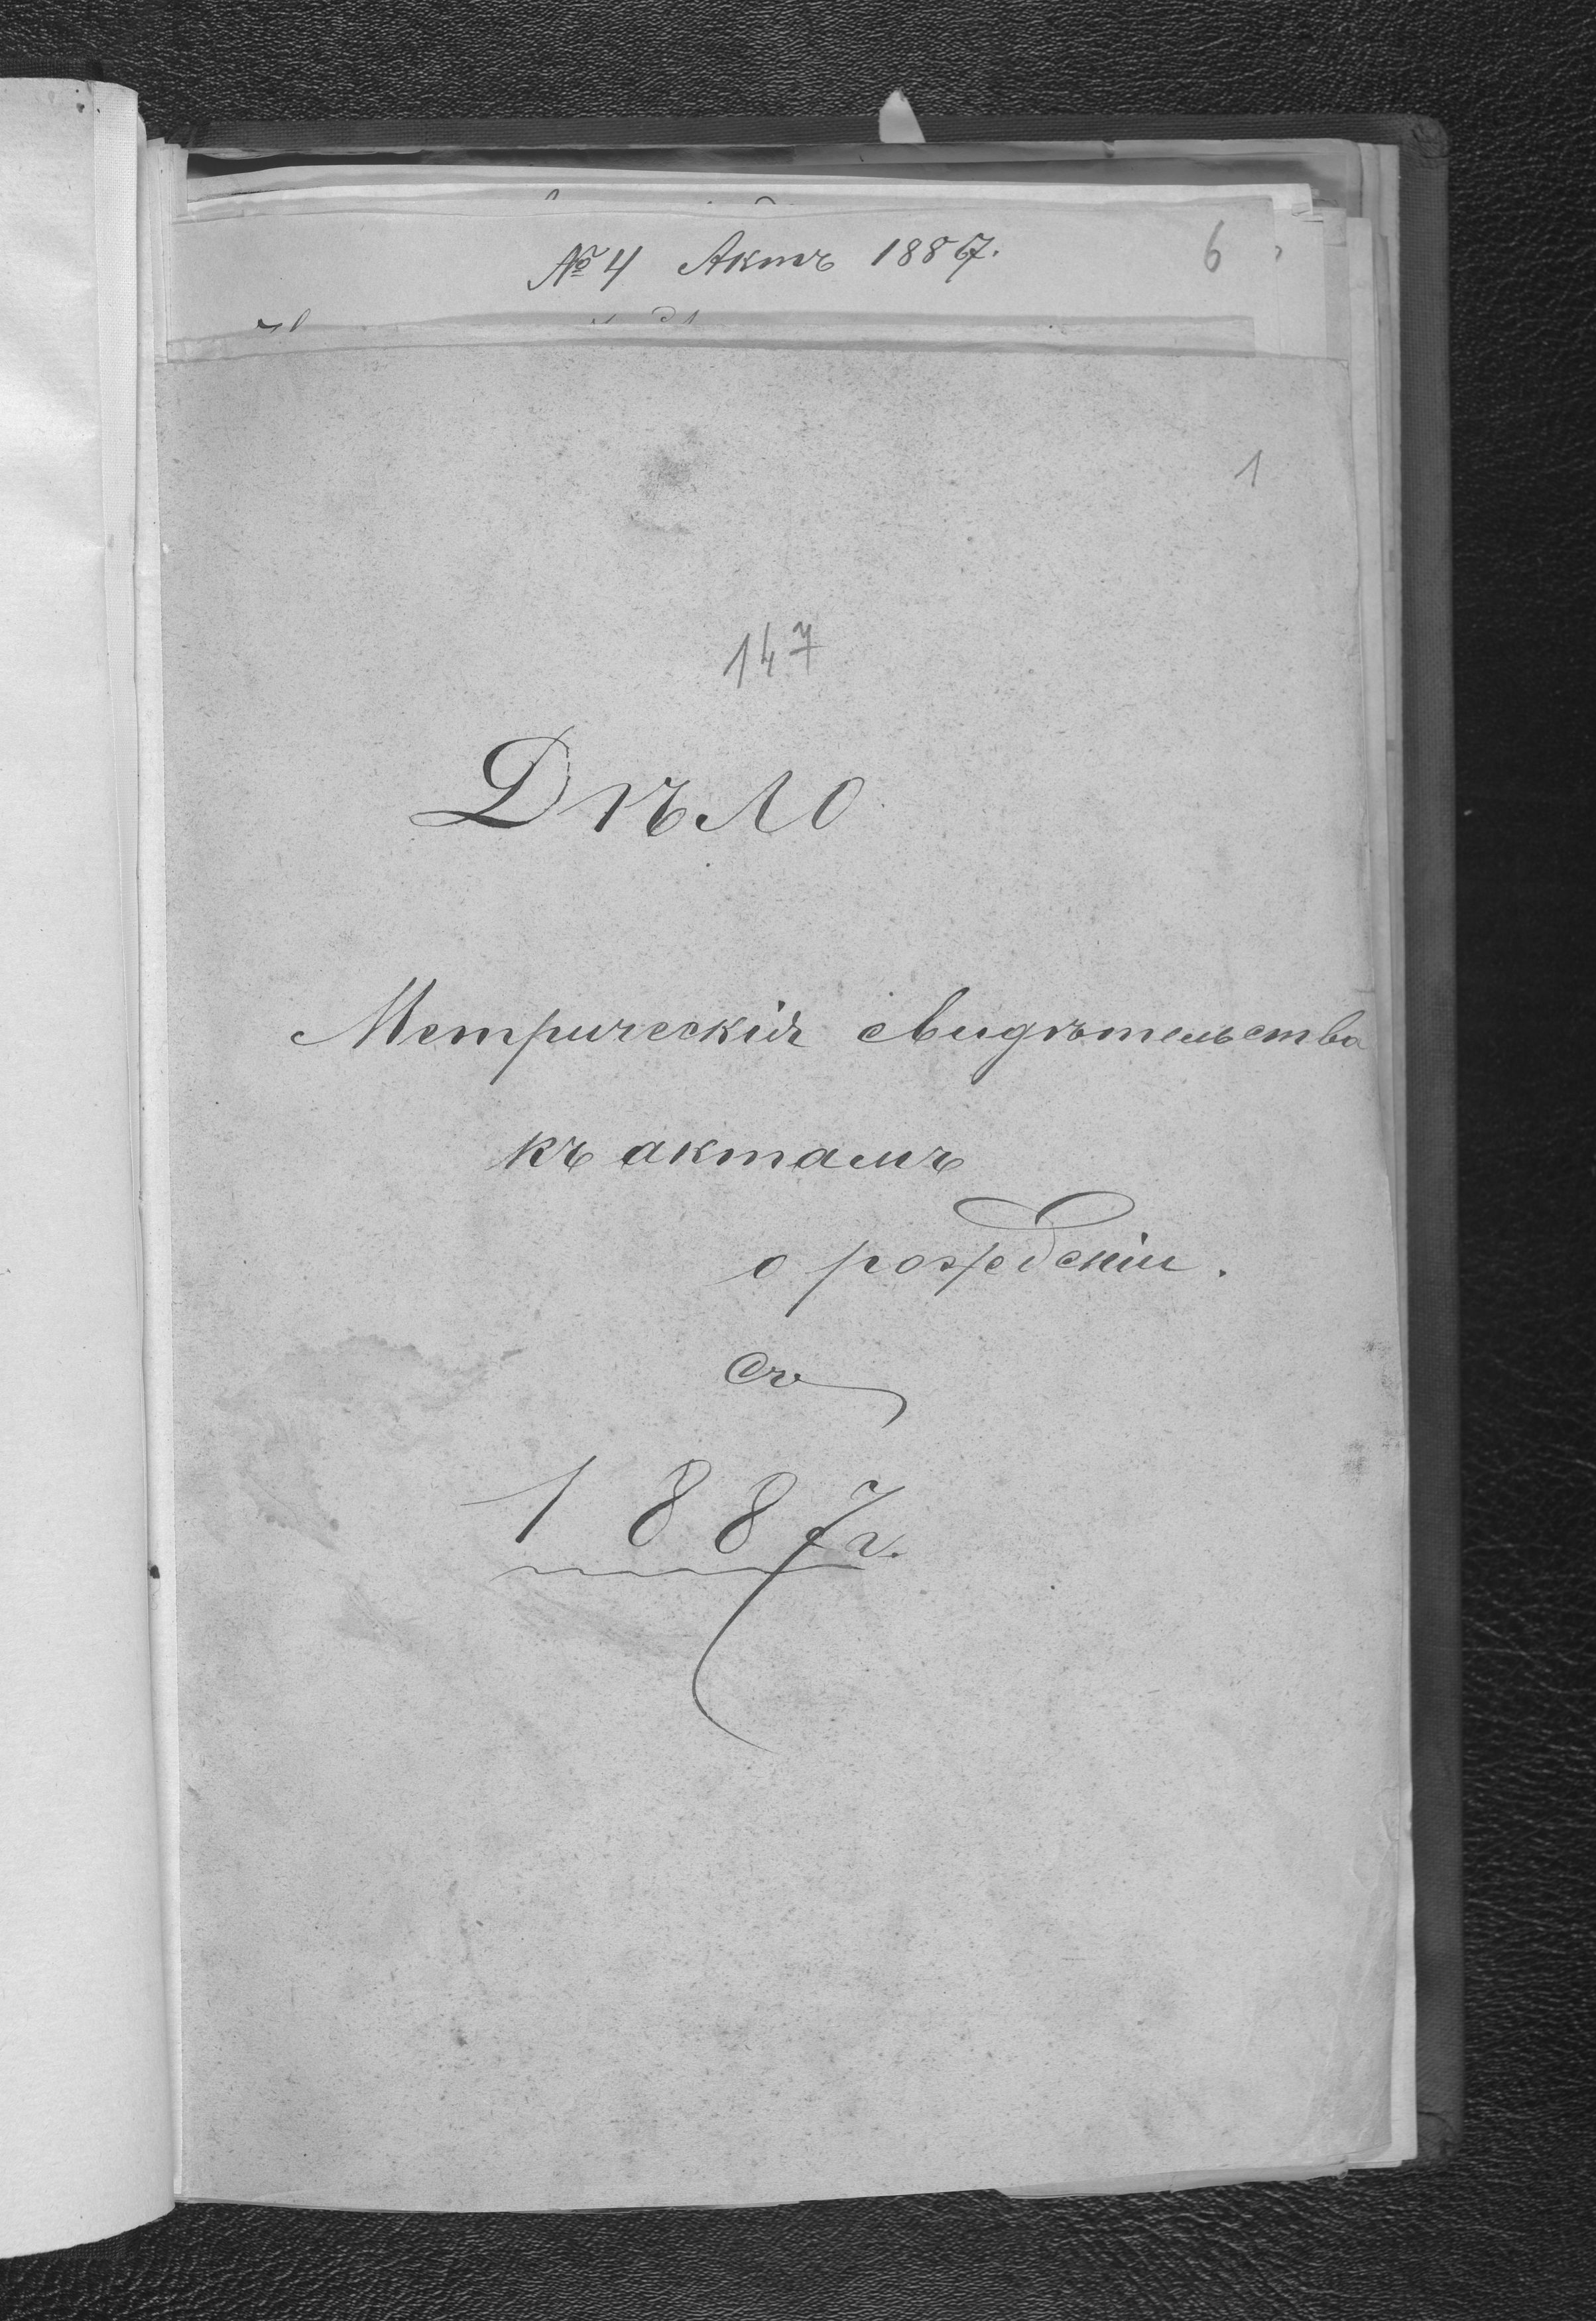 № 4 Актъ 1887. 6
1
147
Дѣло
Метрическія свидѣтельства
къ актамъ
о рожденіи.
Съ
1887 г.